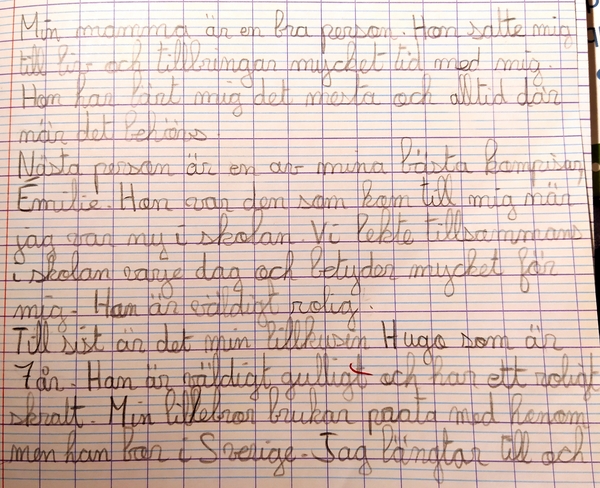 Min mamma är en bra person. Hon satte mig
till liv och tillbringar mycket tid med mig.
Hon har lärt mig det mesta och alltid där
när det behövs.
Nästa person är en av mina bästa kompisar,
Emilie. Hon var den som kom till mig när
jag var ny i skolan. Vi lekte tillsammans
i skolan varje dag och betyder mycket för
mig. Hon är väldigt rolig.
Till sist är det min lillkusin Hugo som är
7 år. Han är väldigt gulligt och har ett roligt
skratt. Min lillebror brukar prata med honom
men han bor i Sverige. Jag längtar till och